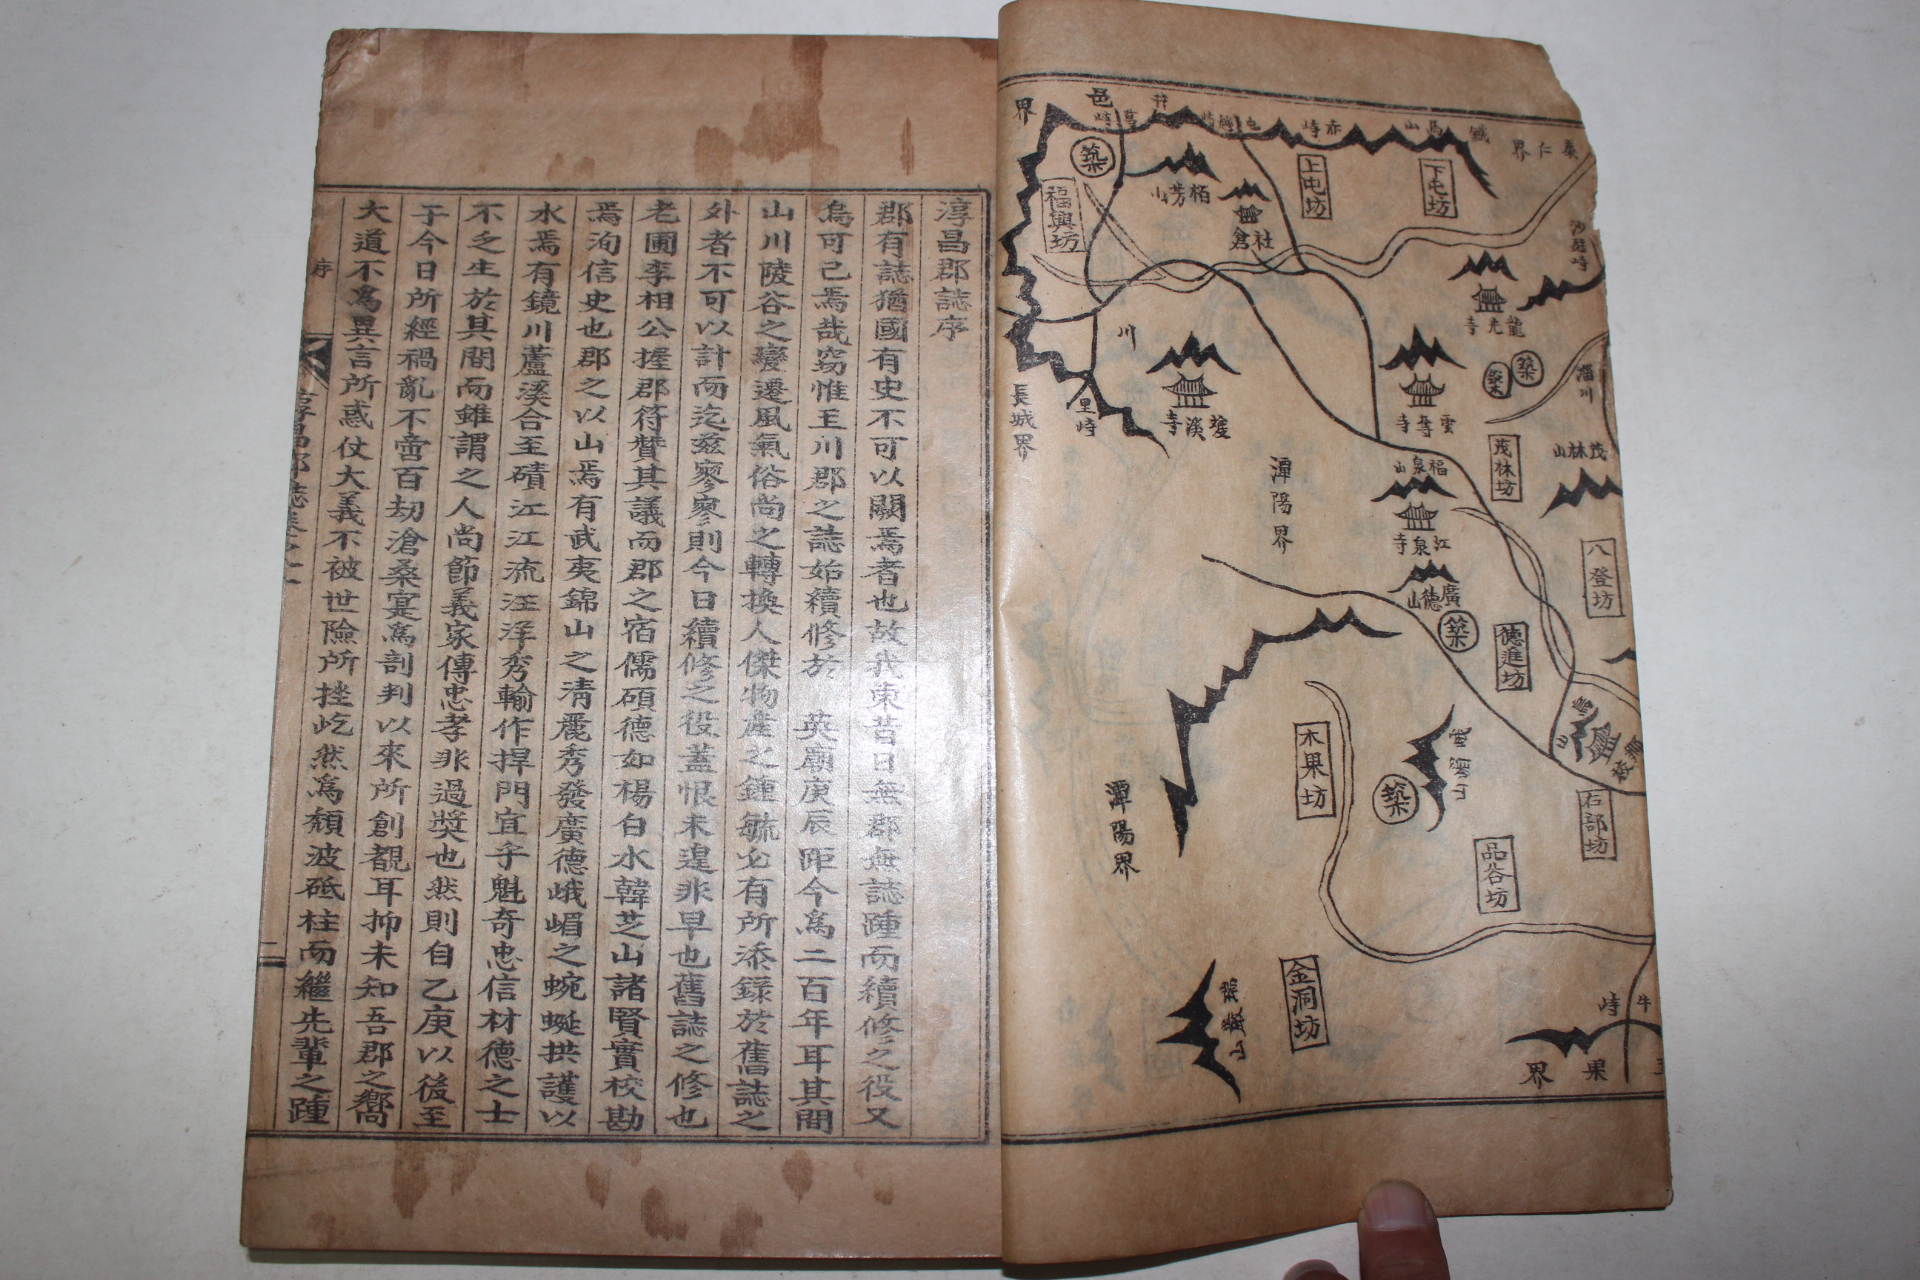 界
邑
井
泰仁界
鐵馬山
赤峙
築
福興坊
栢芳山
社倉
上屯坊
下屯坊
龍光寺
川
長城界
里峙
雲寺
築
淄川
茂林坊
茂林山
福泉山
江泉寺
潭陽界
廣德山
築
八登坊
德進坊
木果坊
築
石部坊
品谷坊
潭陽界
金洞坊
牛峙
果界
淳昌郡誌序
郡有誌猶國有史不可以闕焉者也故我東昔日無郡無誌踵而續修之役又
烏可已焉哉窃惟玉川郡之誌始續修於 英廟庚辰距今爲二百年耳其間
山川陵谷之變遷風氣俗尚之轉換人傑物產之鍾毓必有所添錄於舊誌之
外者不可以計而迄玆寥寥則今日續修之役蓋恨未遑非早也舊誌之修也
老圃李相公握郡符贊其議而郡之宿儒碩德如楊白水韓芝山諸賢實校勘
焉洵信史也郡之以山焉有武夷錦山之淸麗秀發廣德峨嵋之蜿蜒拱護以
水焉有鏡川蘆溪合至磧江江流汪洋秀輸作捍門宜乎魁奇忠信材德之士
不乏生於其間而雖謂之人尚節義家傳忠孝非過奬也然則自乙庚以後至
于今日所經禍亂不啻百劫滄桑寔爲剖判以來所創覩耳抑未知吾郡之嚮
大道不爲異言所惑仗大義不被世險所挫屹然爲頹波砥柱而繼先輩之踵
序
淳昌郡誌卷之一
二